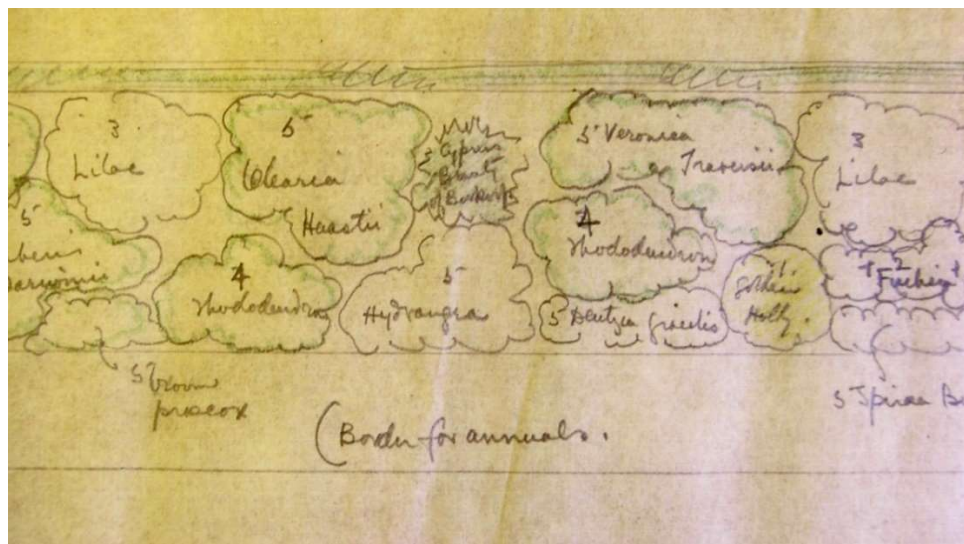 3
Lilac
5
Olearia
Haastii
Cyprus
Beauty
5 Veronica
Traversii
3
Lilac
5
4
Rhododendron
5
Hydrangea
4
Rhododendron
5 Deutzia Gracilis
1
Golden
Holly.
Fuchsia
5 Broom
praecox
5 Spirea B
(Border for annuals.